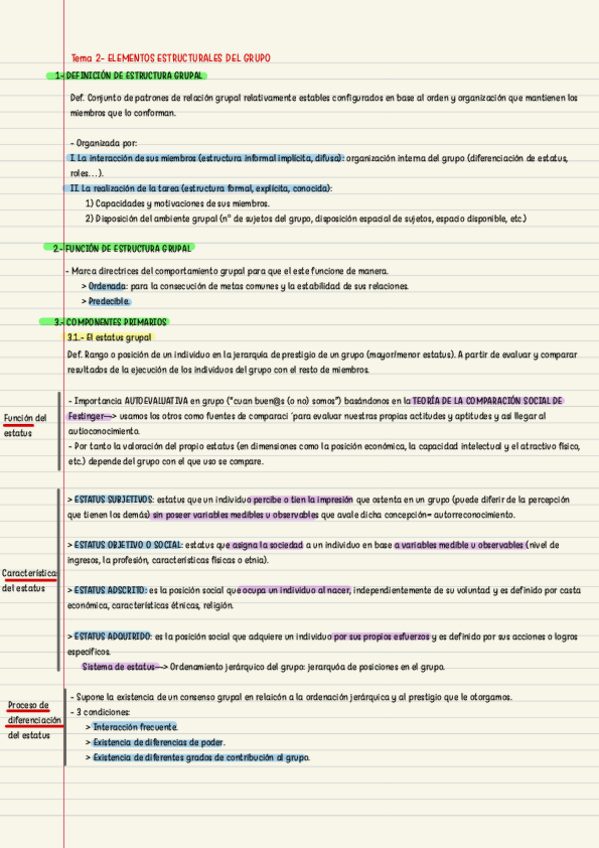 Tema 2- ELEMENTOS ESTRUCTURALES DEL GRUPO
1- DEFINICIÓN DE ESTRUCTURA GRUPAL
Def. Conjunto de patrones de relación grupal relativamente estables configurados en base al orden y organización que mantienen los
miembros que lo conforman.
- Organizada por:
I La interacción de sus miembros (estructura informal implícita, difusa): organización interna del grupo (diferenciación de estatus,
roles...).
II La realización de la tarea (estructura formal, explícita, conocida):
1) Capacidades y motivaciones de sus miembros.
2) Disposición del ambiente grupal (nº de sujetos del grupo, disposición espacial de sujetos, espacio disponible, etc.)
2.- FUNCIÓN DE ESTRUCTURA GRUPAL
- Marca directrices del comportamiento grupal para que el este funcione de manera.
> Ordenada: para la consecución de metas comunes y la estabilidad de sus relaciones.
> Predecible.
3.- COMPONENTES PRIMARIOS
3.1.- El estatus grupal
Def. Rango o posición de un individuo en la jerarquía de prestigio de un grupo (mayor/menor estatus). A partir de evaluar y comparar
resultados de la ejecución de los individuos del grupo con el resto de miembros.
Función del
estatus
- Importancia AUTOEVALUATIVA en grupo ("cuan buen@s (o no) somos") basándonos en la TEORÍA DE LA COMPARACIÓN SOCIAL DE
Festinger—> usamos los otros como fuentes de comparaci ´para evaluar nuestras propias actitudes y aptitudes y así llegar al
autioconocimiento.
- Por tanto la valoración del propio estatus (en dimensiones como la posición económica, la capacidad intelectual y el atractivo físico,
etc.) depende del grupo con el que uso se compare.
Características
del estatus
> ESTATUS SUBJETIVOS: estatus que un individuo percibe o tien la impresión que ostenta en un grupo (puede diferir de la percepción
que tienen los demás) sin poseer variables medibles u observables que avale dicha concepción= autorreconocimiento.
> ESTATUS OBJETIVO O SOCIAL: estatus que asigna la sociedad a un individuo en base a variables medible u observables (nivel de
ingresos, la profesión, características físicas o etnia).
> ESTATUS ADSCRITO: es la posición social que ocupa un individuo al nacer, independientemente de su voluntad y es definido por casta
económica, características étnicas, religión.
> ESTATUS ADQUIRIDO: es la posición social que adquiere un individuo por sus propios esfuerzos y es definido por sus acciones o logros
específicos.
Sistema de estatus—> Ordenamiento jerárquico del grupo: jerarquóa de posiciones en el grupo.
Proceso de
diferenciación
del estatus
- Supone la existencia de un consenso grupal en relaicón a la ordenación jerárquica y al prestigio que le otorgamos.
- 3 condiciones:
> Interacción frecuente.
> Existencia de diferencias de poder.
> Existencia de diferentes grados de contribución al grupo.